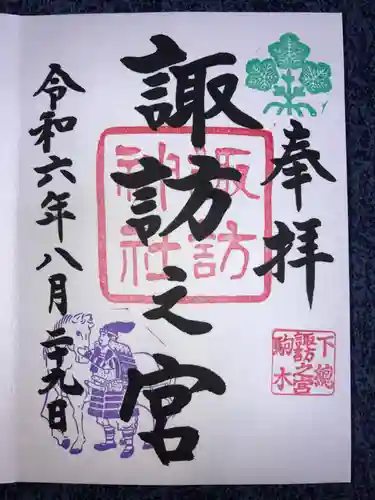 奉拝
下總
諏訪之宮
駒木
諏訪之宮
諏訪
神社
令和六年八月二十九日